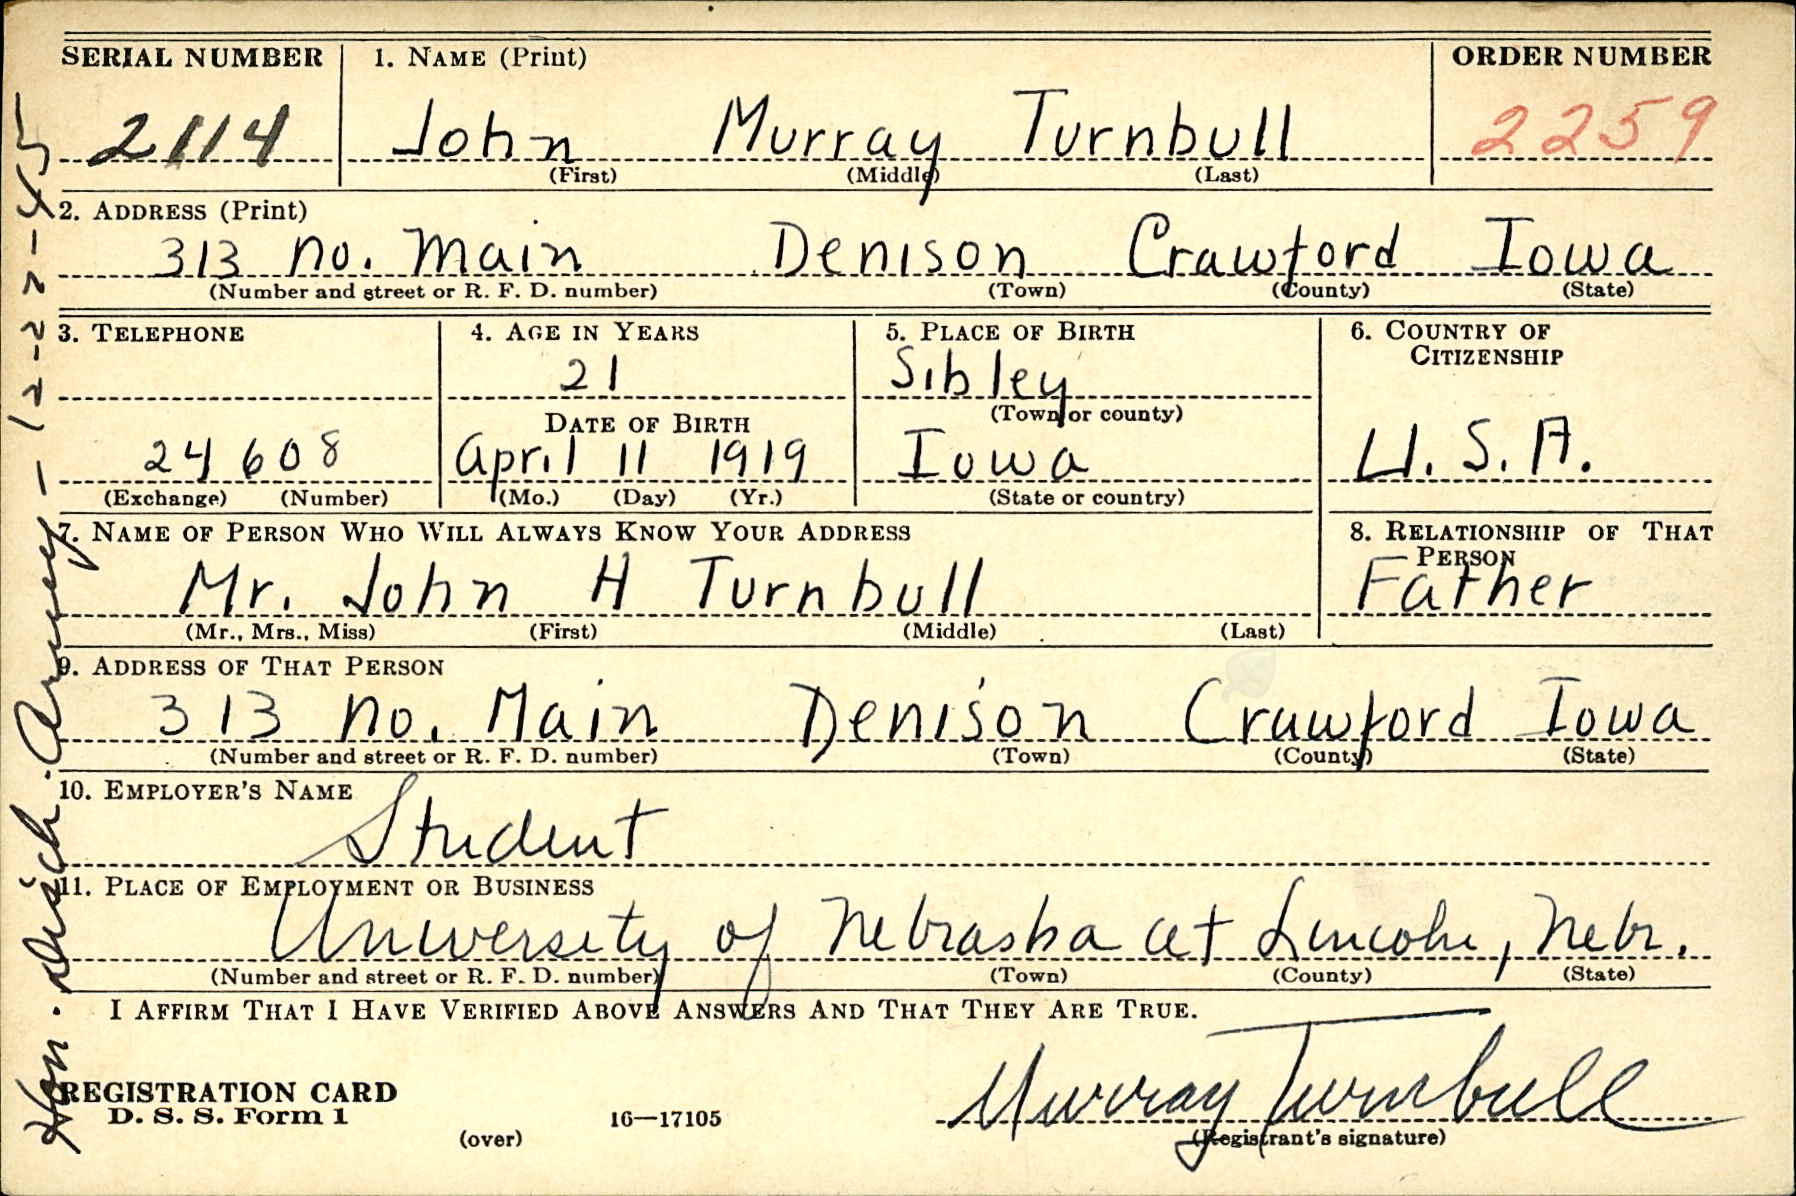 SERIAL NUMBER 1. NAME (Print) ORDER NUMBER
2114 John Murray Turnbull 2259
(First) (Middle) (Last)
2. ADDRESS (Print)
313 No. Main Denison Crawford Iowa
(Number and street or R. F. D. number) (Town) (County) (State)
3. TELEPHONE 4. AGE IN YEARS 5. PLACE OF BIRTH 6. COUNTRY OF
CITIZENSHIP
21 Sibley
DATE OF BIRTH (Town or county)
24 608 April 11 1919 Iowa U.S.A.
(Exchange) (Number) (Mo.) (Day) (Yr.) (State or country)
7. NAME OF PERSON WHO WILL ALWAYS KNOW YOUR ADDRESS 8. RELATIONSHIP OF THAT
PERSON
Mr. John H Turnbull Father
(Mr., Mrs., Miss) (First) (Middle) (Last)
9. ADDRESS OF THAT PERSON
313 No. Main Denison Crawford Iowa
(Number and street or R. F. D. number) (Town) (County) (State)
10. EMPLOYER'S NAME
Student
11. PLACE OF EMPLOYMENT OR BUSINESS
University of Nebraska at Lincoln, Nebr.
(Number and street or R. F. D. number) (Town) (County) (State)
I AFFIRM THAT I HAVE VERIFIED ABOVE ANSWERS AND THAT THEY ARE TRUE.
Murray Turnbull
REGISTRATION CARD
D. S. S. Form 1 16—17105
(over) (Registrant's signature)
Hon. Disch. Army - 12-22-45